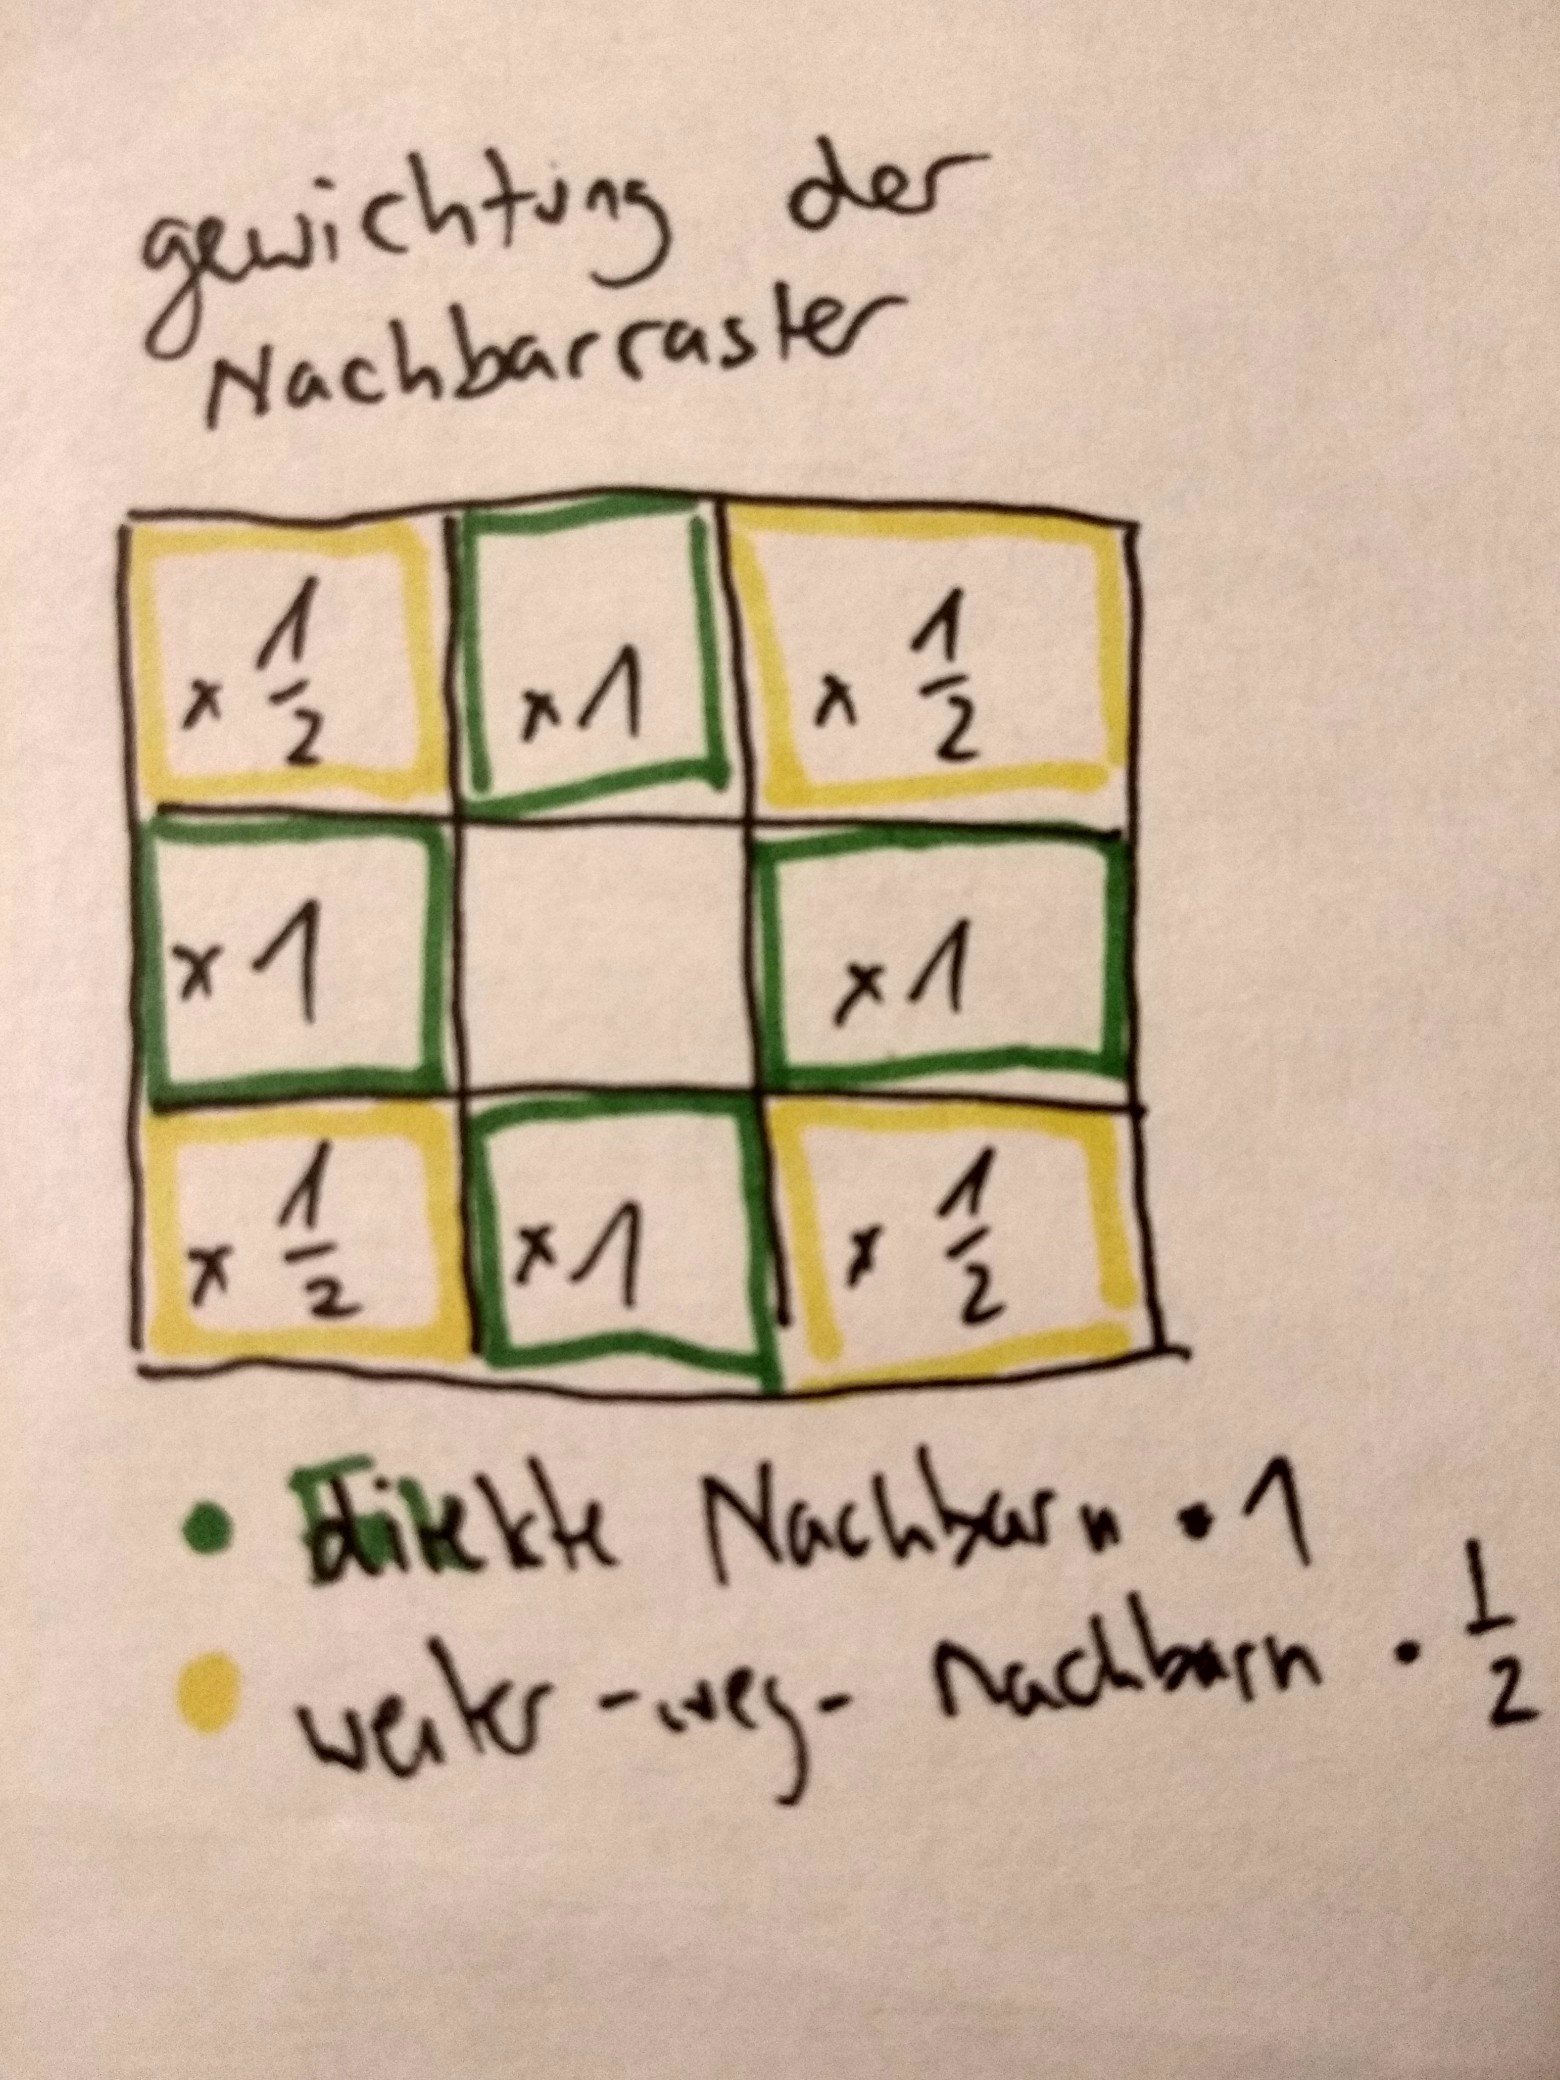 gewichtung der
Nachbarraster
x 1/2 x 1 x 1/2
x 1 x 1
x 1/2 x 1 x 1/2
• direkte Nachbarn • 1
• weiter-weg- Nachbarn • 1/2